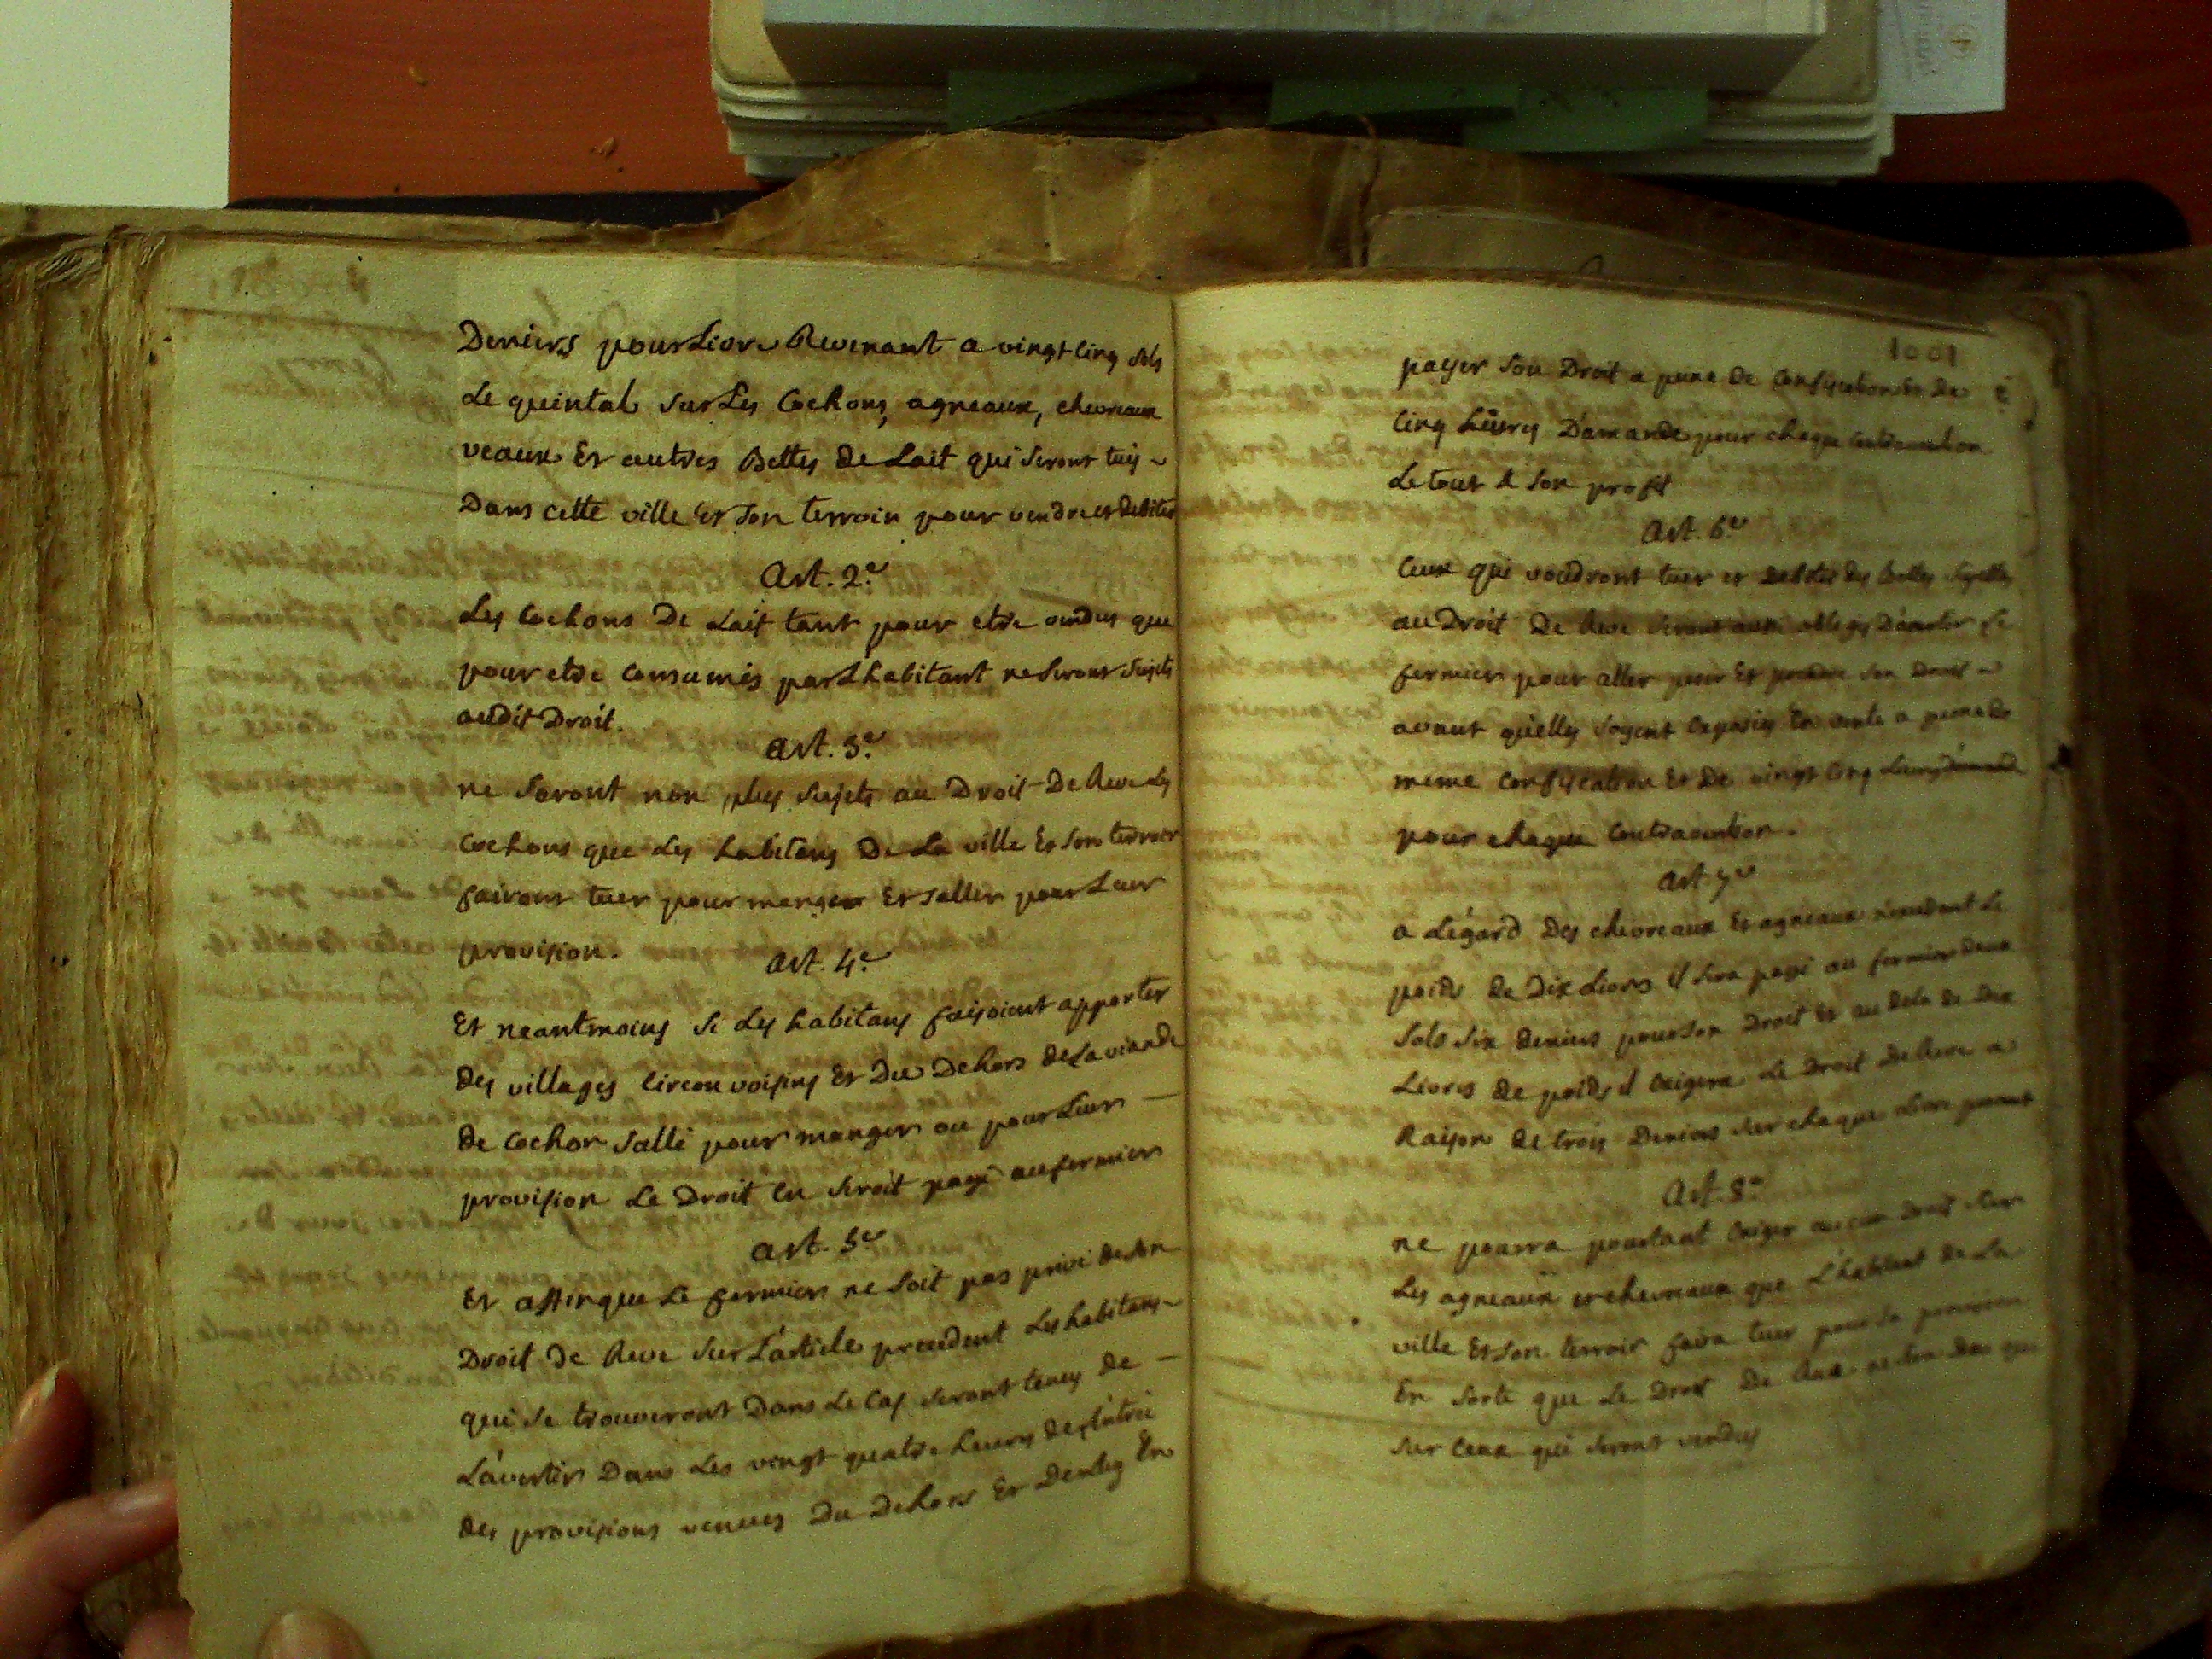 Deniers pour Livre Revenant a vingt cinq sols
Le quintal sur Les Cochons, agneaux, chevreaux
veaux Et autres Bettes de Lait qui seront tués
Dans cette ville Et son terroir pour vendre et debiter
Art. 2.e
Les Cochons De Lait tant pour etre vendus que
pour etre Consumés par L'habitant ne seront sujets
audit Droit.
Art. 3.e
ne seront non plus sujets au Droit De Reve Les
Cochons que Les habitans De La ville Et son terroir
fairont tuer pour manger Et saller pour Leur
provision.
Art. 4.e
Et neantmoins si Les habitans faisoient apporter
des villages Circonvoisins Et Du Dehors de La viande
de Cochon sallé pour manger ou pour Leur
provision Le Droit en seroit payé au fermier
Art. 5.e
Et affin que Le fermier ne soit pas privé de son
Droit De Reve sur L'article precedent Les habitans
qui se trouveront Dans Le Cas seront tenus de
L'avertir Dans Les vingt quatre heures de L'entrée
des provisions venues Du Dehors Et En
1001
payer son Droit a peine De Confiscation Et De
Cinq Livres D'amande pour chaque Contravention
Le tout a son profit
Art. 6.e
Ceux qui voudront tuer et debiter des Bettes sujettes
au Droit De Reve seront aussi obliges D'avertir Le
fermier pour aller peser Et prendre son Droit
avant qu'elles soyent Exposées En vente a peine de
meme Confiscation Et De vingt Cinq Livres d'amande
pour chaque Contravention.
Art. 7.e
a L'égard Des chevreaux Et agneaux n'excedant Le
poids de Dix Livres il sera payé au fermier Deux
sols six deniers pour son Droit Et au dela de Dix
Livres de poids il Exigera Le Droit De Reve a
Raison de trois Deniers sur chaque Livre
Art. 8.e
ne pourra pourtant Exiger aucun Droit sur
Les agneaux et chevreaux que L'habitant de La
ville Et son terroir faira tuer pour sa provision
En sorte que Le Droit De Reve ne sera deu que
sur Ceux qui seront vendus